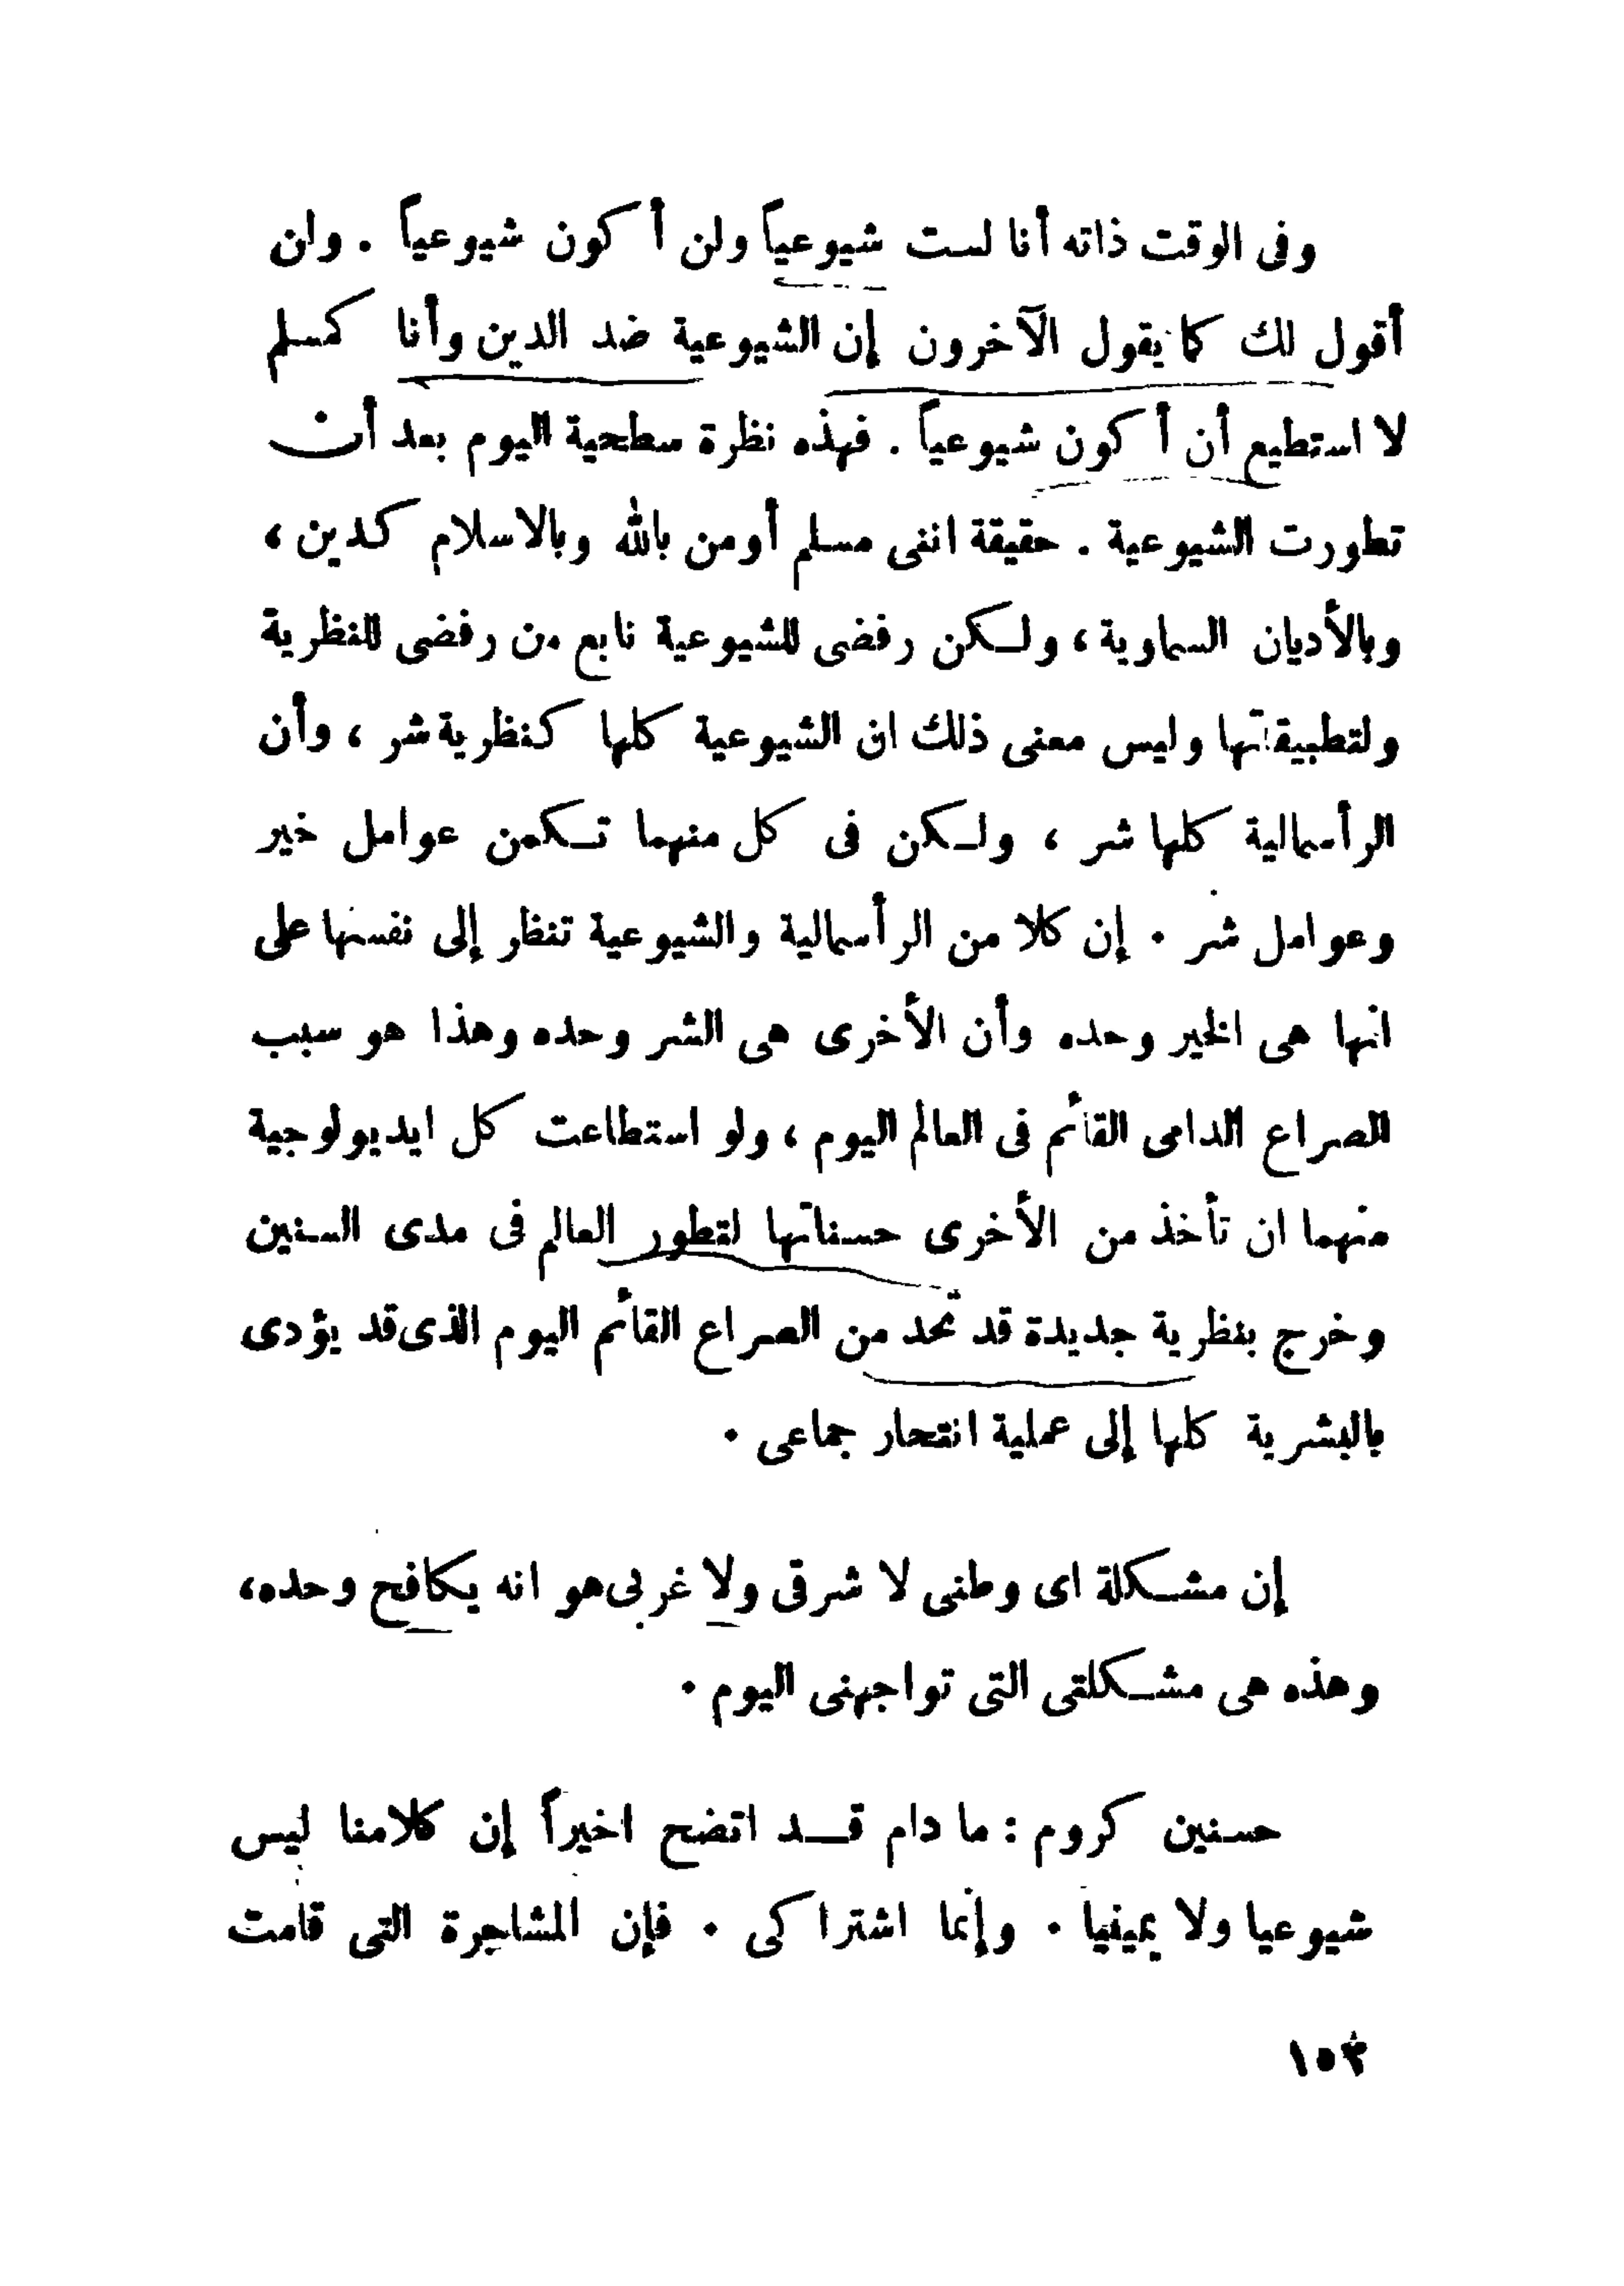 وفى الوقت ذاته أنا لست شيوعياً ولن أكون شيوعياً . ولن
أقول لك كما يقول الآخرون إن الشيوعية ضد الدين وأنا كمسلم
لا استطيع أن أكون شيوعياً . فهذه نظرة سطحية اليوم بعد أن
تطورت الشيوعية . حقيقة اننى مسلم أومن بالله وبالاسلام كدين ،
وبالأديان السماوية ، ولكن رفضى للشيوعية نابع من رفضى للنظرية
ولتطبيقاتها وليس معنى ذلك ان الشيوعية كلها كنظرية شر ، وأن
الرأسمالية كلها شر ، ولكن فى كل منهما تكمن عوامل خير
وعوامل شر . إن كلا من الرأسمالية والشيوعية تنظر إلى نفسها على
انها هى الخير وحده وأن الأخرى هى الشر وحده وهذا هو سبب
الصراع الدامى القائم فى العالم اليوم ، ولو استطاعت كل ايديولوجية
منهما ان تأخذ من الأخرى حسناتها لتطور العالم فى مدى السنين
وخرج بنظرية جديدة قد تحد من الصراع القائم اليوم الذى قد يؤدى
بالبشرية كلها إلى عملية انتحار جماعى .
إن مشكلة اى وطنى لا شرقى ولا غربى هو انه يكافح وحده ،
وهذه هى مشكلتى التى تواجهنى اليوم .
حسنين كروم : ما دام قد اتضح اخيراً إن كلامنا ليس
شيوعيا ولا يمينيا . وإنما اشتراكى . فإن المشاجرة التى قامت
١٥٣